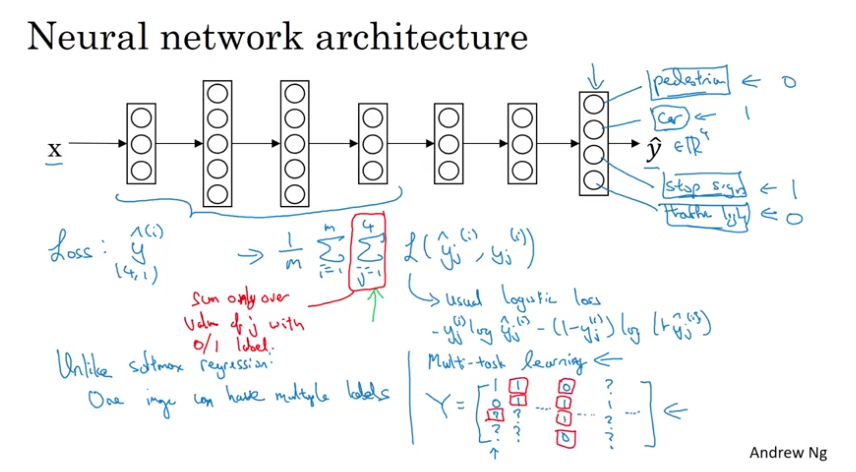 Neural network architecture
pedestrian ← 0
car ← 1
x
ŷ ∈ ℝ⁴
stop sign ← 1
traffic light ← 0
Loss: ŷ^(i) → 1/m ∑_{i=1}^{m} ∑_{j=1}^{4} L(ŷ_j^(i), y_j^(i))
(4,1)
Sum only over
value of j with
0/1 label.
usual logistic loss
- y_j^(i) log ŷ_j^(i) - (1-y_j^(i)) log (1-ŷ_j^(i))
Unlike softmax regression:
One image can have multiple labels
Multi-task learning ←
1 1 0 ?
Y = 0 1 .... 1 .... 1 ... ←
? ? 1 ?
? ? 0 ?
Andrew Ng